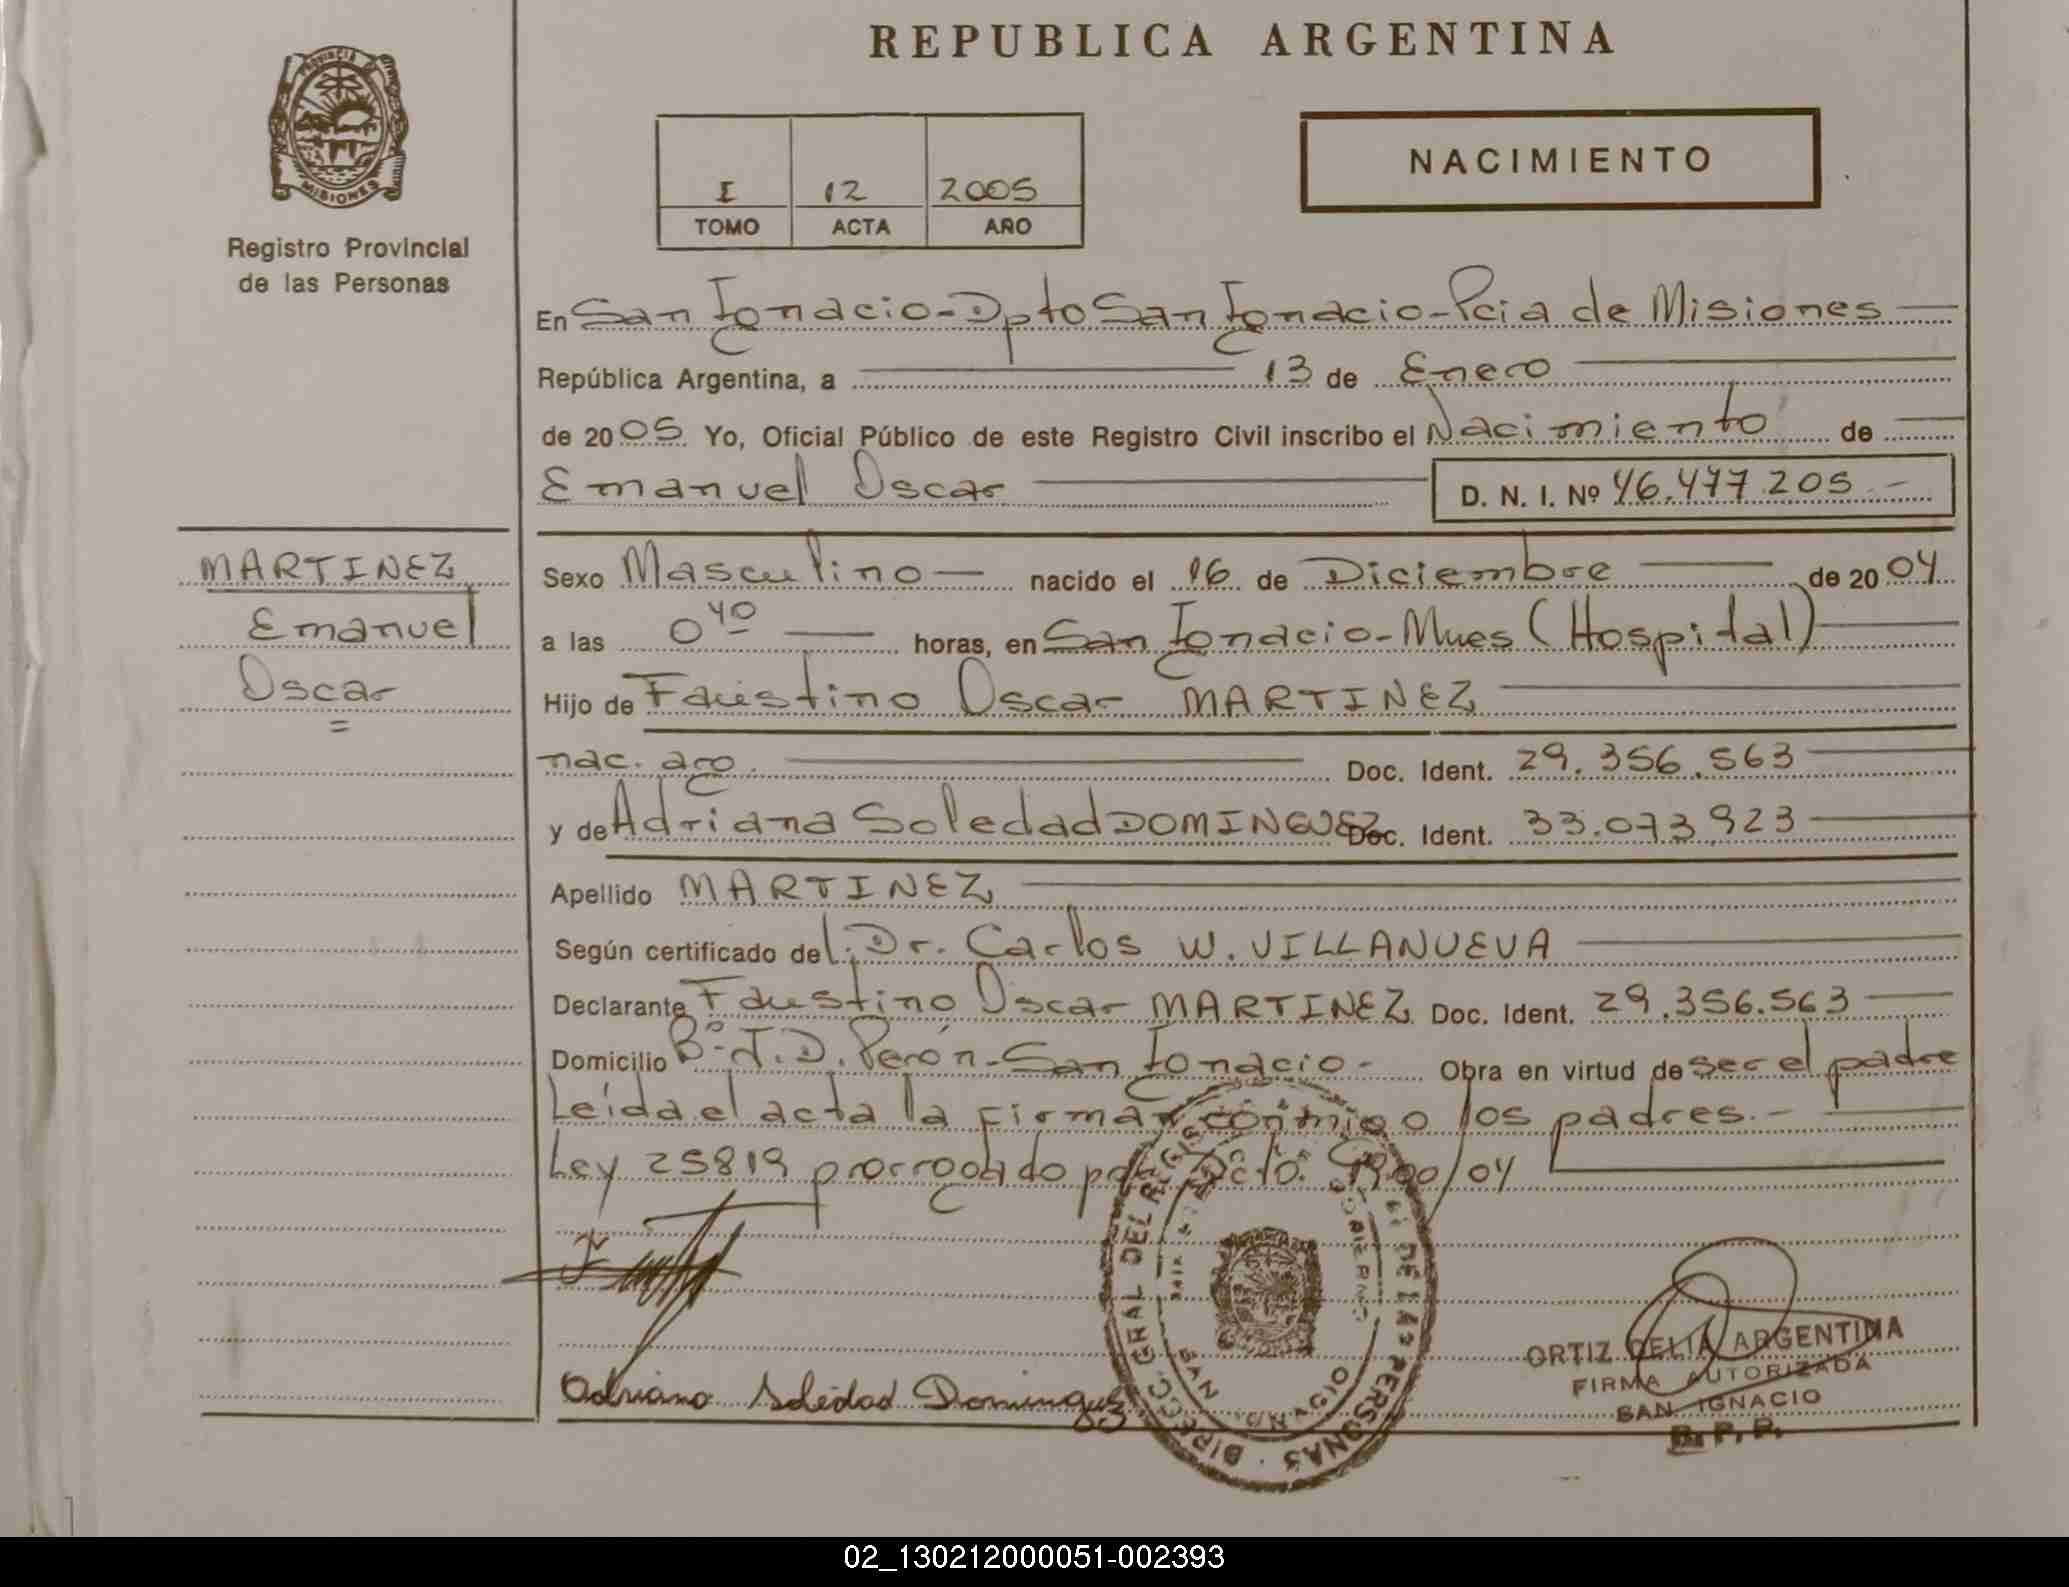 REPUBLICA ARGENTINA
PROVINCIA D
MISIONES
Registro Provincial
de las Personas
I 12 2005
TOMO ACTA AÑO
NACIMIENTO
En San Ignacio - Dpto San Ignacio - Pcia de Misiones
República Argentina, a 13 de Enero
de 2005 Yo, Oficial Público de este Registro Civil inscribo el Nacimiento de
Emanuel Oscar D. N. I. Nº 46.477.205
MARTINEZ
Emanuel
Oscar
Sexo Masculino nacido el 16 de Diciembre de 2004
a las 0 40 horas, en San Ignacio - Mnes (Hospital)
Hijo de Faustino Oscar MARTINEZ
nac. arg. Doc. Ident. 29.356.563
y de Adriana Soledad DOMINGUEZ Doc. Ident. 33.073.923
Apellido MARTINEZ
Según certificado del: Dr. Carlos W. VILLANUEVA
Declarante Faustino Oscar MARTINEZ Doc. Ident. 29.356.563
Domicilio Bº J.D. Perón - San Ignacio - Obra en virtud de ser el padre
Leída el acta la firman conmigo los padres.-
Ley 25819 prorrogado por Dcto. 1900/04
Adriana Soledad Dominguez
DIRECC. GRAL DEL REG DE LAS PERSONAS
ORTIZ DELIA ARGENTINA
FIRMA AUTORIZADA
SAN IGNACIO
R. P. P.
02_130212000051-002393